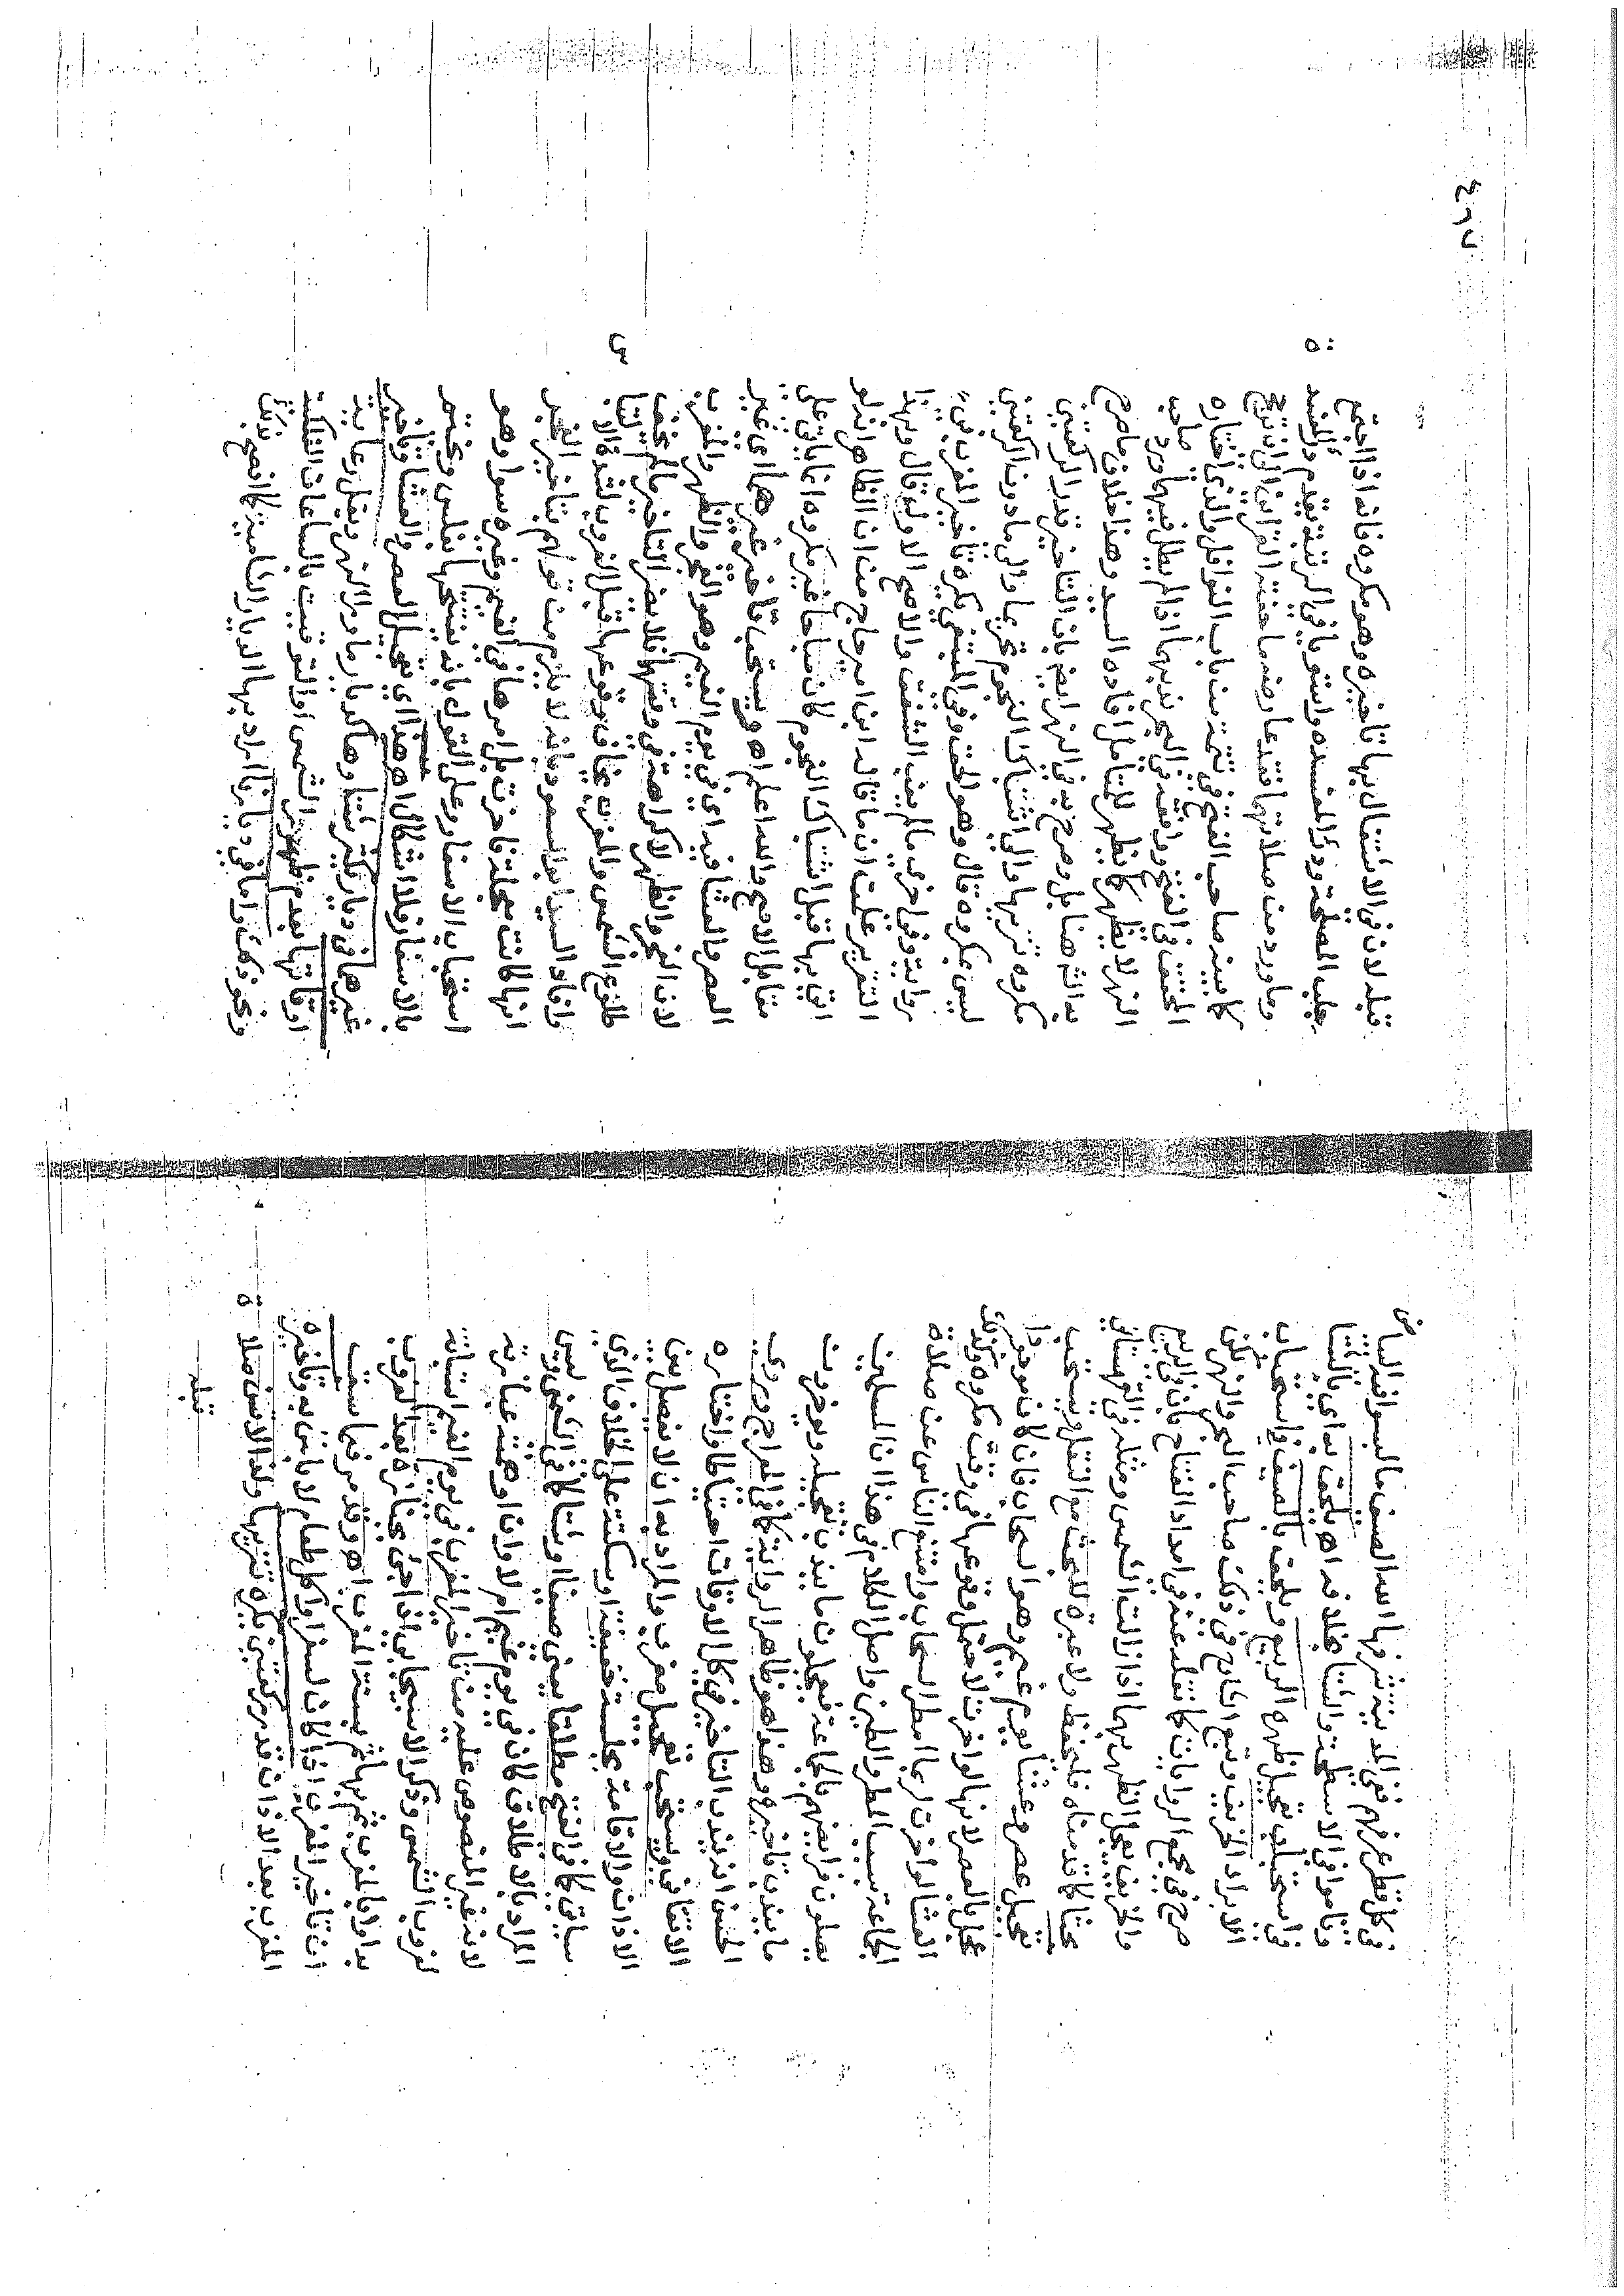 في كل قطر عرفهم ففي المدينة شرفها الله الصيف ما لبسوا فيه البياض
وناموا في الاسطحة والشتا بخلافه اه يلحق به اي بالشتا
في استحباب تعجيل ظهره الربيع ويلحق بالصيف في استحباب
الابراد الخريف وتبع الشارح في ذلك صاحب البحر والنهر لكن
صرح في مجمع الروايات كما نقله عنه في امداد الفتاح بان في الربيع
والخريف يعجل الظهر بهما اذا زالت الشمس ومثله في القهستاني
بحثا كما قدمناه فليحفظ ولا عبرة للبحث مع النقل ويستحب
تعجيل عصر وعشا يوم غيم وهو السحاب فان كان موجودا
عجل بالعصر لانها لو اخرت لاحتمل وقوعها في وقت مكروه وكذلك
العشا لو اخرت لربما امطر السحاب وامتنع الناس عن صلاة
الجماعة بسبب المطر والطين واصل الكلام في هذا ان المسلمين
يصلون فرايضهم بالجماعة فيعجلون ما يندب تعجيله ويوخرون
ما يندب تاخيره وهذا هو ظاهر الرواية كما في المعراج وروي
الحسن انه يندب التاخير في كل الاوقات احتياطا واختاره
الاتقاني ويستحب تعجيل مغرب والمراد به ان لا يفصل بين
الاذان والاقامة بجلسة خفيفة او سكتة على الخلاف الذي
سياتي كما في الفتح مطلقا يعني صيفا وشتا كما في الكنز وليس
المراد بالاطلاق كان في يوم غيم ام لا وان اوهمته عبارته
لانه غير المنصوص عليه من تاخير المغرب في يوم الغيم استبانة
لغروب الشمس وذكر الاسبيجابي اذا جئ بجنازة بعد الغروب
بداوا بالمغرب ثم بها ثم بسنة المغرب اه وقد مر فيما سبق
ان تاخير المغرب اذا كان لسفر او اكل طعام لا باس به وتاخيره
المغرب بعد الاذان قدر ركعتين يكره تنزيها ولذا صلاة
قبله
٤٦٧
قبله لان في الاشتغال بها تاخيره وهو مكروه فانه اذا اجتمع
جلب المصلحة ودرا المفسدة واستويا في الرتبة يقدم درا المفسدة
وما ورد من صلاتها فقد عارضه ما حققه القراين
كما بينه صاحب الفتح في تتمة من باب النوافل والذي اختاره
المحقق في الفتح ووافقه في البحر ندبهما اذا لم يطل فيهما ورد صاحب
النهر لا يظهر كما يظهر للمتامل افاده السيد وهذا خلاف ما صرح
به الشر هنا بل وصرح به في النهر ايضا بان التاخير قدر الركعتين
مكروه تنزيها والى اشتباك النجوم تحريما والى ما دون الركعتين
ليس بمكروه قال وهو الحق وفي المبتغى يكره تاخير المغرب في
رواية وفي اخرى ما لم يغب الشفق والاصح الاول قال وبهذا
التقرير علمت ان ما قاله ابن امير حاج من ان الظاهر انه لو
اتى بها قبل اشتباك النجوم كان مباحا غير مكروه انما ياتي على
مقابل الاصح والله اعلم اه ويستحب تاخير غيرهما اي غير
العصر والعشا فيه اي في يوم الغيم وهو الفجر والظهر والمغرب
لان الفجر والظهر لا كراهة في وقتهما فلا يضر التاخير ما لم يخف
طلوع الشمس والمغرب يخاف وقوعها قبل الغروب لشدة الالتباس
وافاد السيد ابو السعود بانه لا يلزم من قولهم بتاخير الفجر
انها كانت معجلة فاخرت بل امرها في الغيم وغيره سوا وهو
استحباب الاسفار وعلى القول بانه يفتتحها بغلس ويختم
بالاسفار فلا اشكال اه هذا اي تعجيل العصر والعشا وتاخير
غيرهما في ديار يكثر شتاوها كديار ما ورا النهر ويقل رعاية
اوقاتها بعدم ظهور الشمس او التوقيت بالساعات الفلكية
ونحو ذلك واما في ديارنا اراد بها الديار الشامية كما افصح بذلك